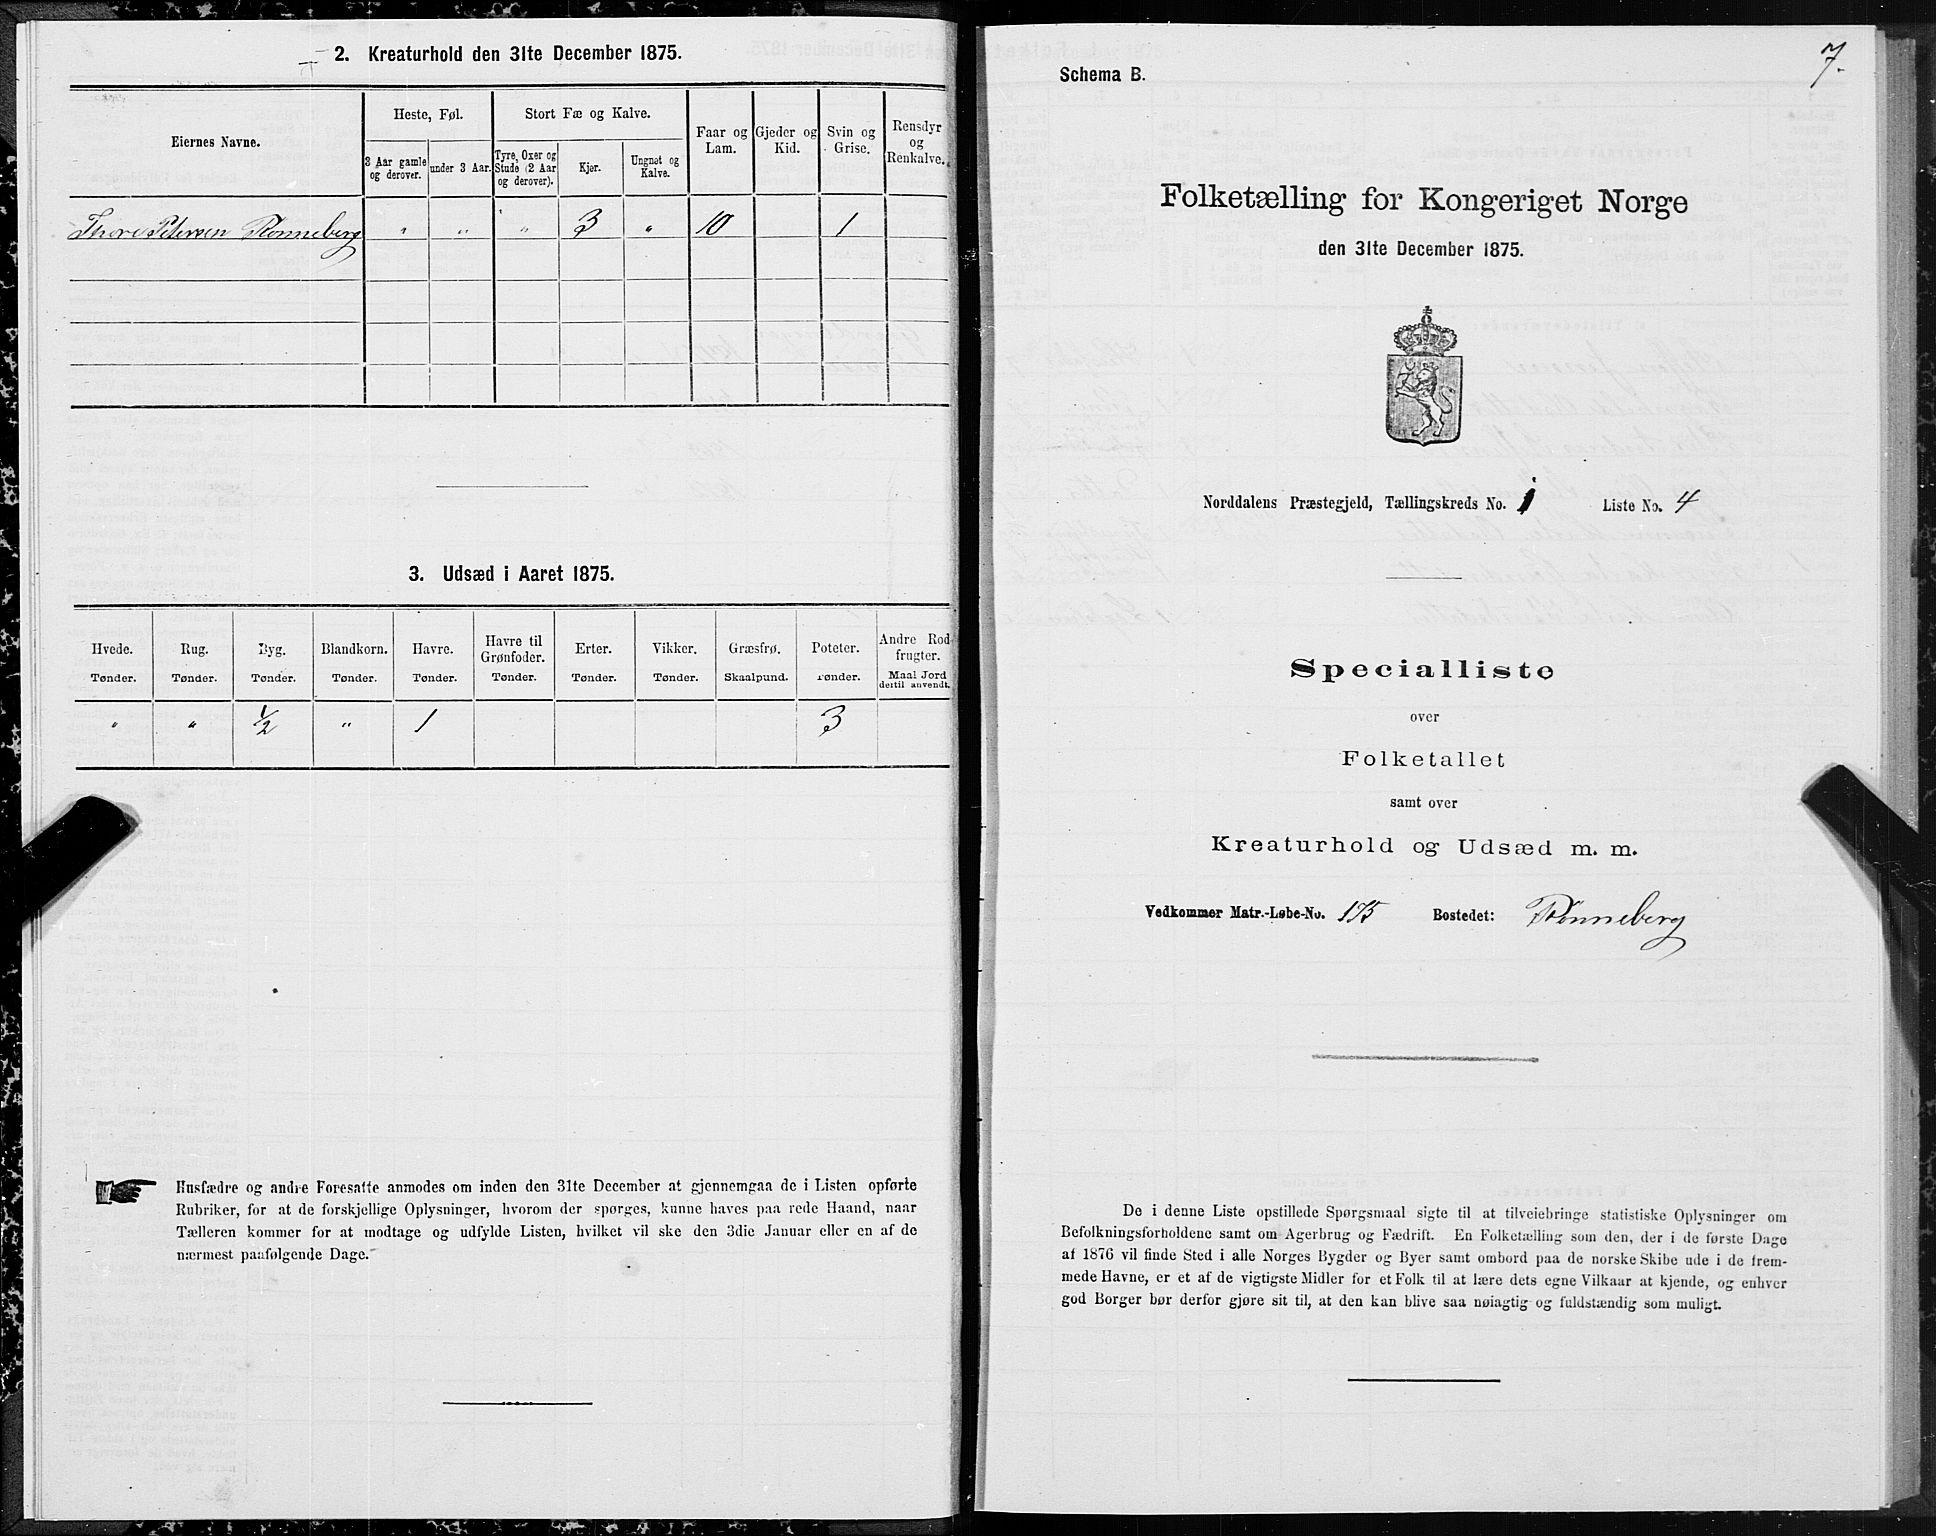 2. Kreaturhold den 31te December 1875.
Eiernes Navne.
Heste, Føl.
Stort Fæ og Kalve.
Faar og Lam.
Gjeder og Kid.
Svin og Grise.
Rensdyr og Renkalve.
3 Aar gamle og derover.
under 3 Aar.
Tyre, Oxer og Stude (2 Aar og derover).
Kjør.
Ungnøt og Kalve.
Thore Petersen Rønneberg " " " 3 " 10 1
3. Udsæd i Aaret 1875.
Hvede. Rug. Byg. Blandkorn. Havre. Havre til Grønfoder. Erter. Vikker. Græsfrø. Poteter. Andre Rodfrugter.
Tønder. Tønder. Tønder. Tønder. Tønder. Tønder. Tønder. Tønder. Skaalpund. Tønder. Maal Jord dertil anvendt.
" " ½ " 1 3
Husfædre og andre Foresatte anmodes om inden den 31te December at gjennemgaa de i Listen opførte
Rubriker, for at de forskjellige Oplysninger, hvorom der spørges, kunne haves paa rede Haand, naar
Tælleren kommer for at modtage og udfylde Listen, hvilket vil ske den 3die Januar eller en af de
nærmest paafølgende Dage.
7.
Schema B.
Folketælling for Kongeriget Norge
den 31te December 1875.
Norddalens Præstegjeld, Tællingskreds No. 1 Liste No. 4
Specialliste
over
Folketallet
samt over
Kreaturhold og Udsæd m. m.
Vedkommer Matr.-Løbe-No. 175 Bostedet: Rønneberg
De i denne Liste opstillede Spørgsmaal sigte til at tilveiebringe statistiske Oplysninger om
Befolkningsforholdene samt om Agerbrug og Fædrift. En Folketælling som den, der i de første Dage
af 1876 vil finde Sted i alle Norges Bygder og Byer samt ombord paa de norske Skibe ude i de frem-
mede Havne, er et af de vigtigste Midler for et Folk til at lære dets egne Vilkaar at kjende, og enhver
god Borger bør derfor gjøre sit til, at den kan blive saa nøiagtig og fuldstændig som muligt.